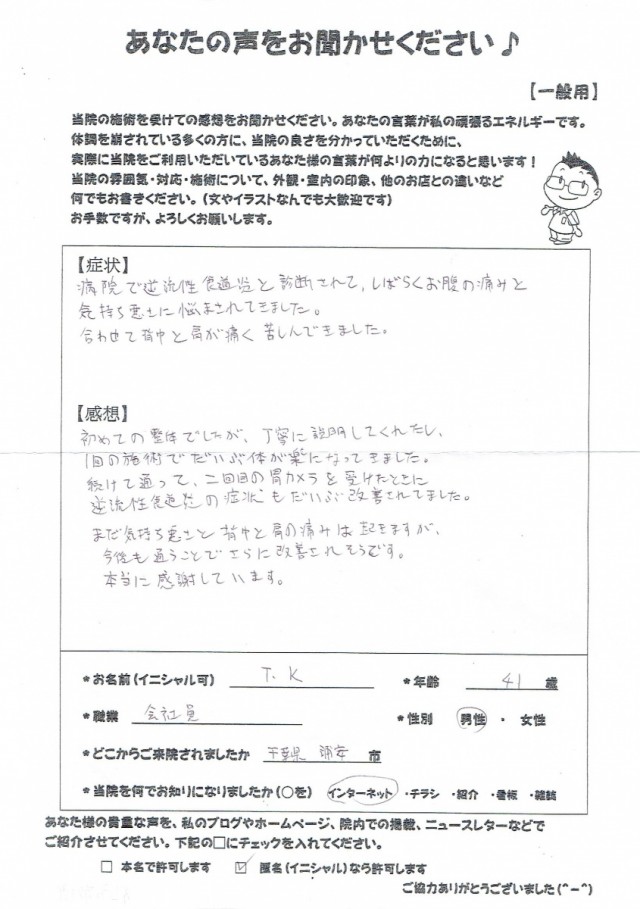 あなたの声をお聞かせください♪
【一般用】
当院の施術を受けての感想をお聞かせください。あなたの言葉が私の頑張るエネルギーです。
体調を崩されている多くの方に、当院の良さを分かっていただくために、
実際に当院をご利用いただいているあなた様の言葉が何よりの力になると思います！
当院の雰囲気・対応・施術について、外観・室内の印象、他のお店との違いなど
何でもお書きください。（文やイラストなんでも大歓迎です）
お手数ですが、よろしくお願いします。
【症状】
病院で逆流性食道炎と診断されて、しばらくお腹の痛みと
気持ち悪さに悩まされてきました。
合わせて背中と肩が痛く苦しんできました。
【感想】
初めての整体でしたが、丁寧に説明してくれたし、
1回の施術でだいぶ体が楽になってきました。
続けて通って、二回目の胃カメラを受けたときに
逆流性食道炎の症状もだいぶ改善されてました。
まだ気持ち悪さと背中と肩の痛みは起きますが、
今後も通うことでさらに改善されそうです。
本当に感謝しています。
*お名前（イニシャル可） T.K *年齢 41 歳
*職業 会社員 *性別 男性 ・ 女性
*どこからご来院されましたか 千葉県 浦安 市
*当院を何でお知りになりましたか（○を） インターネット ・チラシ ・紹介 ・看板 ・雑誌
あなた様の貴重な声を、私のブログやホームページ、院内での掲載、ニュースレターなどで
ご紹介させてください。下記の□にチェックを入れてください。
□ 本名で許可します ☑ 匿名（イニシャル）なら許可します
ご協力ありがとうございました（^ー^）